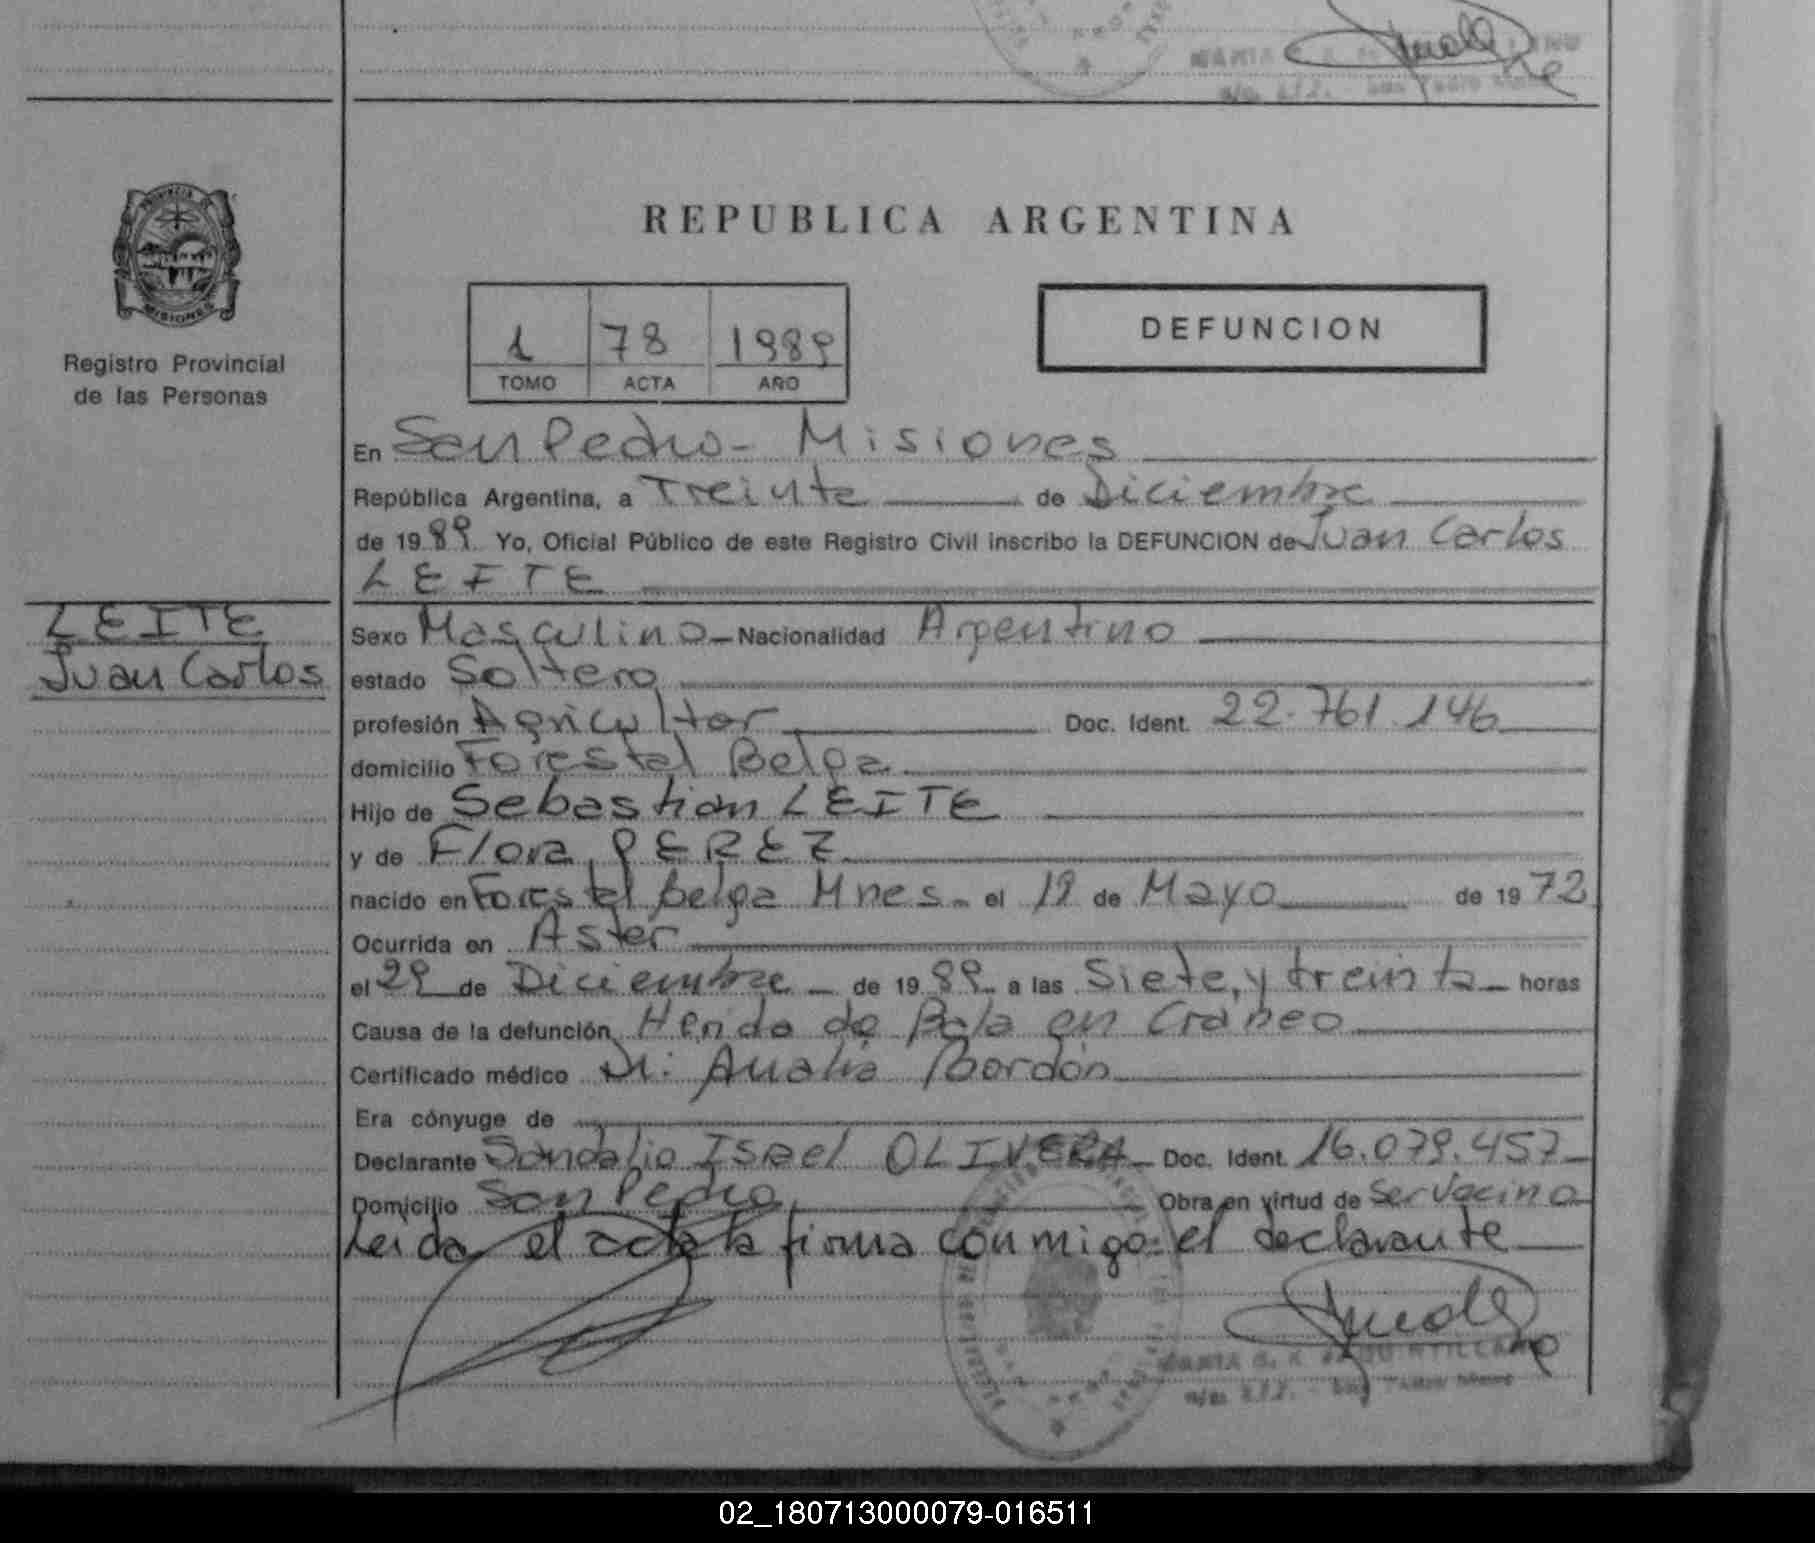 REPUBLICA ARGENTINA
PROVINCIA DE
MISIONES
Registro Provincial
de las Personas
1 78 1989
TOMO ACTA AÑO
DEFUNCION
En San Pedro - Misiones
República Argentina, a Treinta de Diciembre
de 1989 Yo, Oficial Público de este Registro Civil inscribo la DEFUNCION de Juan Carlos
LEITE
LEITE
Juan Carlos
Sexo Masculino - Nacionalidad Argentino
estado Soltero
profesión Agricultor Doc. Ident. 22.761.146
domicilio Forestal Belga
Hijo de Sebastian LEITE
y de Flora PEREZ
nacido en Forestal Belga Mnes - el 19 de Mayo de 1972
Ocurrida en Aster
el 29 de Diciembre - de 1989 a las Siete y treinta - horas
Causa de la defunción Herida de Bala en Craneo
Certificado médico Dr: Analia Bordón
Era cónyuge de
Declarante Sandalio Isael OLIVERA - Doc. Ident. 16.079.457
Domicilio San Pedro Obra en virtud de Ser Vecino
Leida el acta la firma conmigo el declarante
02_180713000079-016511